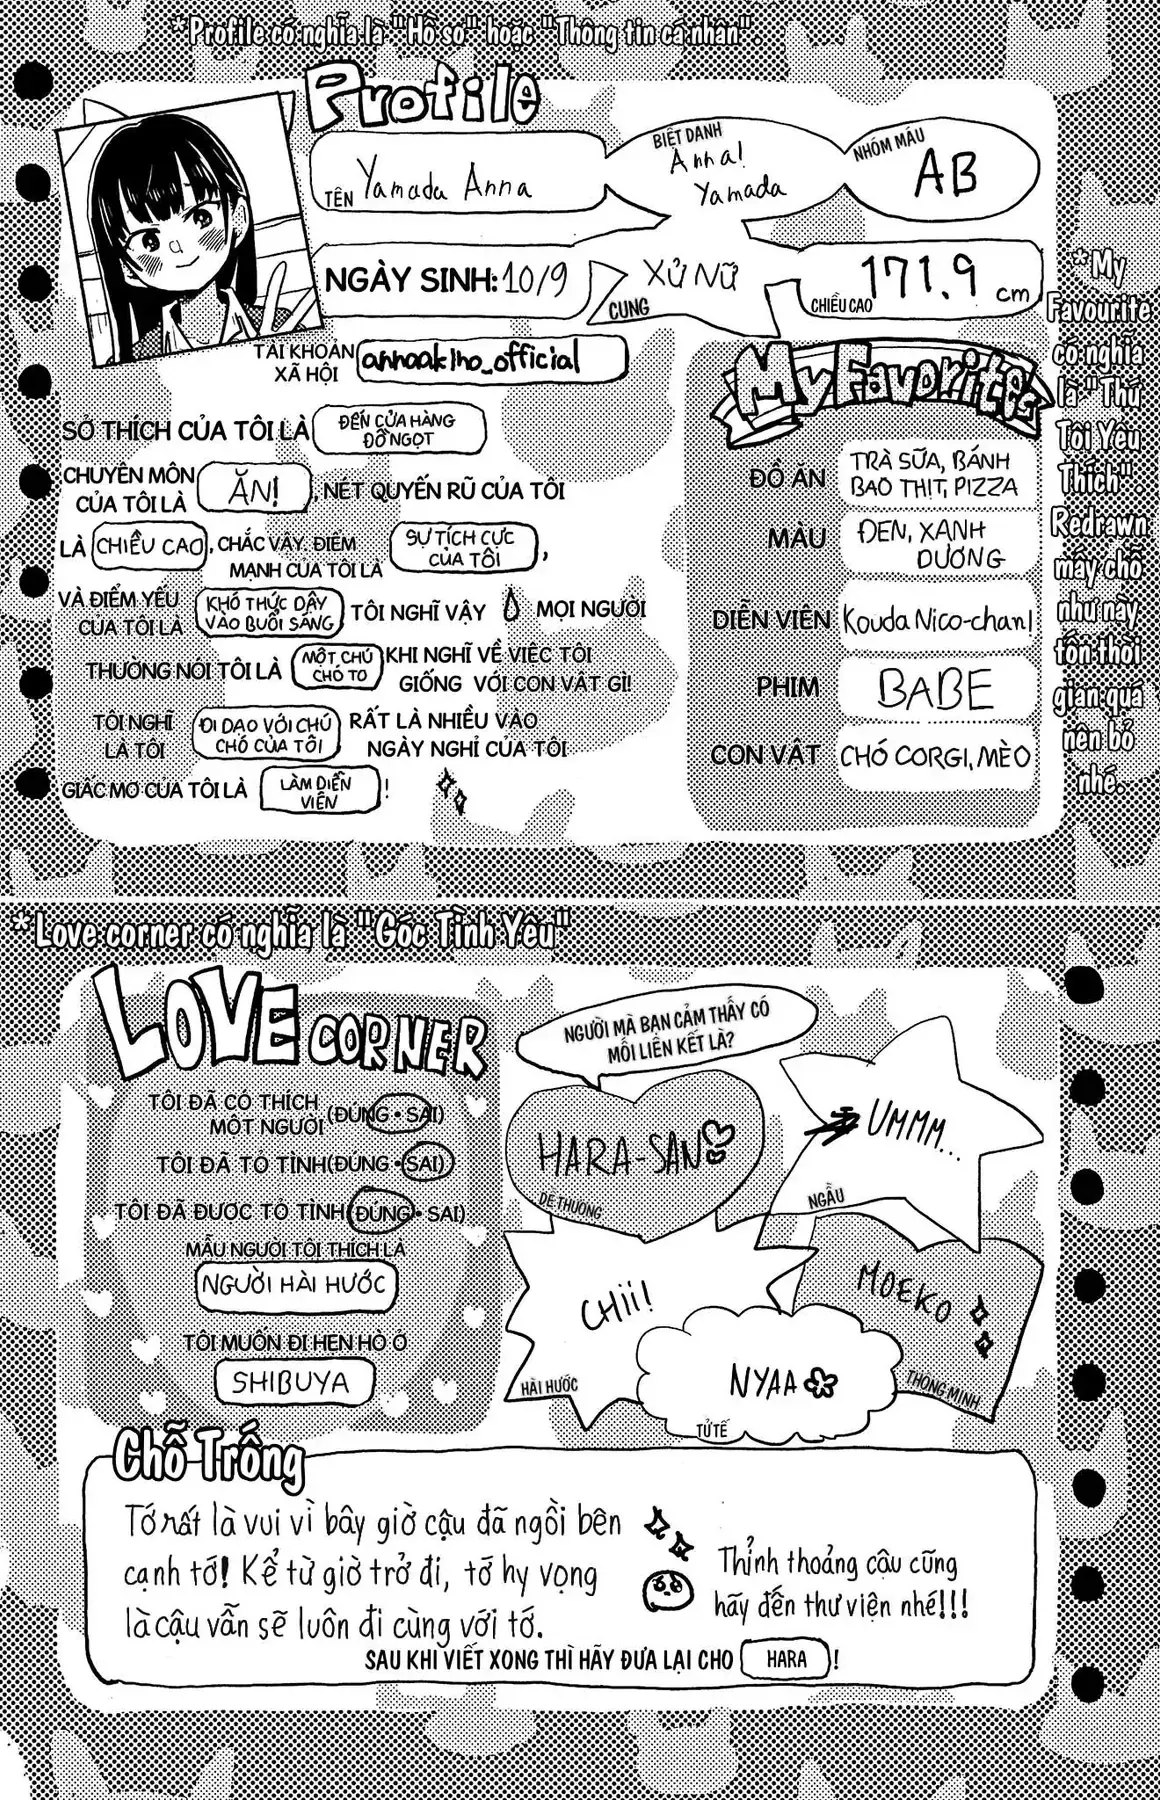 *Profile có nghĩa là "Hồ sơ" hoặc "Thông tin cá nhân".
Profile
TÊN Yamada Anna
BIỆT DANH
Anna!
Yamada
NHÓM MÁU
AB
NGÀY SINH: 10/9
XỬ NỮ
CUNG
171.9 cm
CHIỀU CAO
TÀI KHOẢN
XÃ HỘI
annaakiho_official
SỞ THÍCH CỦA TÔI LÀ
ĐẾN CỬA HÀNG
ĐỒ NGỌT
CHUYÊN MÔN
CỦA TÔI LÀ
ĂN!
, NÉT QUYẾN RŨ CỦA TÔI
LÀ CHIỀU CAO, CHẮC VẬY. ĐIỂM
MẠNH CỦA TÔI LÀ
SỰ TÍCH CỰC
CỦA TÔI
,
VÀ ĐIỂM YẾU
CỦA TÔI LÀ
KHÓ THỨC DẬY
VÀO BUỔI SÁNG
TÔI NGHĨ VẬY MỌI NGƯỜI
THƯỜNG NÓI TÔI LÀ
MỘT CHÚ
CHÓ TO
KHI NGHĨ VỀ VIỆC TÔI
GIỐNG VỚI CON VẬT GÌ!
TÔI NGHĨ
LÀ TÔI
ĐI DẠO VỚI CHÚ
CHÓ CỦA TÔI
RẤT LÀ NHIỀU VÀO
NGÀY NGHỈ CỦA TÔI
GIẤC MƠ CỦA TÔI LÀ
LÀM DIỄN
VIÊN
!
My Favorites
ĐỒ ĂN
TRÀ SỮA, BÁNH
BAO THỊT, PIZZA
MÀU
ĐEN, XANH
DƯƠNG
DIỄN VIÊN
Kouda Nico-chan!
PHIM
BABE
CON VẬT
CHÓ CORGI, MÈO
*My
Favourite
có nghĩa
là "Thứ
Tôi Yêu
Thích"
Redrawn
mấy chỗ
như này
tốn thời
gian quá
nên bỏ
nhé.
*Love corner có nghĩa là "Góc Tình Yêu"
LOVE CORNER
TÔI ĐÃ CÓ THÍCH
MỘT NGƯỜI (ĐÚNG • SAI)
TÔI ĐÃ TỎ TÌNH (ĐÚNG • SAI)
TÔI ĐÃ ĐƯỢC TỎ TÌNH (ĐÚNG • SAI)
MẪU NGƯỜI TÔI THÍCH LÀ
NGƯỜI HÀI HƯỚC
TÔI MUỐN ĐI HẸN HÒ Ở
SHIBUYA
NGƯỜI MÀ BẠN CẢM THẤY CÓ
MỐI LIÊN KẾT LÀ?
HARA-SAN
DỄ THƯƠNG
UMMM...
NGẦU
CHii!
HÀI HƯỚC
MOEKO
THÔNG MINH
NYAA
TỬ TẾ
Chỗ Trống
Tớ rất là vui vì bây giờ cậu đã ngồi bên
cạnh tớ! Kể từ giờ trở đi, tớ hy vọng
là cậu vẫn sẽ luôn đi cùng với tớ.
Thỉnh thoảng cậu cũng
hãy đến thư viện nhé!!!
SAU KHI VIẾT XONG THÌ HÃY ĐƯA LẠI CHO HARA !